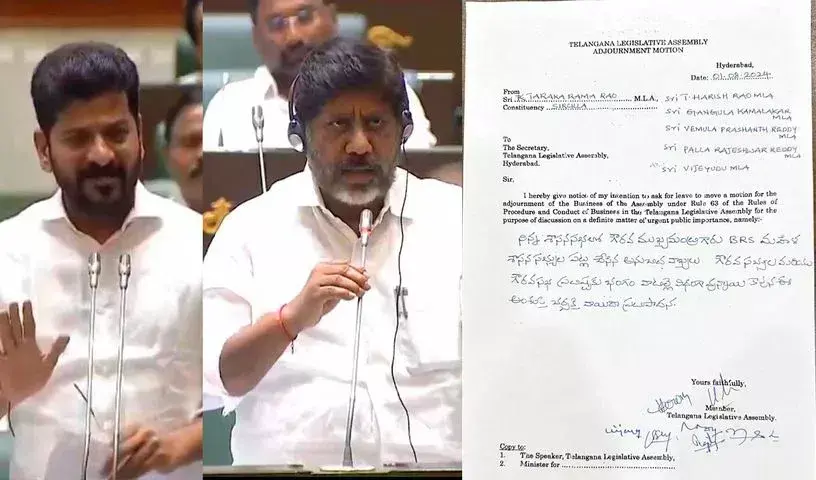 TELANGANA LEGISLATIVE ASSEMBLY
ADJOURNMENT MOTION
Hyderabad,
Date: 01.08.2024
From
Sri K. TARAKA RAMA RAO M.L.A.,
Constituency SIRCILLA
Sri T. HARISH RAO MLA
Sri GANGULA KAMALAKAR MLA
Sri VEMULA PRASHANTH REDDY MLA
Sri PALLA RAJESHWAR REDDY MLA
Sri VIJEYUDU MLA
To
The Secretary,
Telangana Legislative Assembly,
Hyderabad.
Sir,
I hereby give notice of my intention to ask for leave to move a motion for the
adjournment of the Business of the Assembly under Rule 63 of the Rules of
Procedure and Conduct of Business in the Telangana Legislative Assembly for the
purpose of discussion on a definite matter of urgent public importance, namely:-
నిన్న శాసనసభలో గౌరవ ముఖ్యమంత్రిగారు BRS మహిళా
శాసన సభ్యుల పట్ల చేసిన అనుచిత వ్యాఖ్యలు గౌరవ సభ్యుల మరియు
గౌరవసభ ప్రతిష్టకు భంగం
చర్చకై వాయిదా ప్రతిపాదన.
Yours faithfully,
Member,
Telangana Legislative Assembly.
Copy to:
1. The Speaker, Telangana Legislative Assembly,
2. Minister for